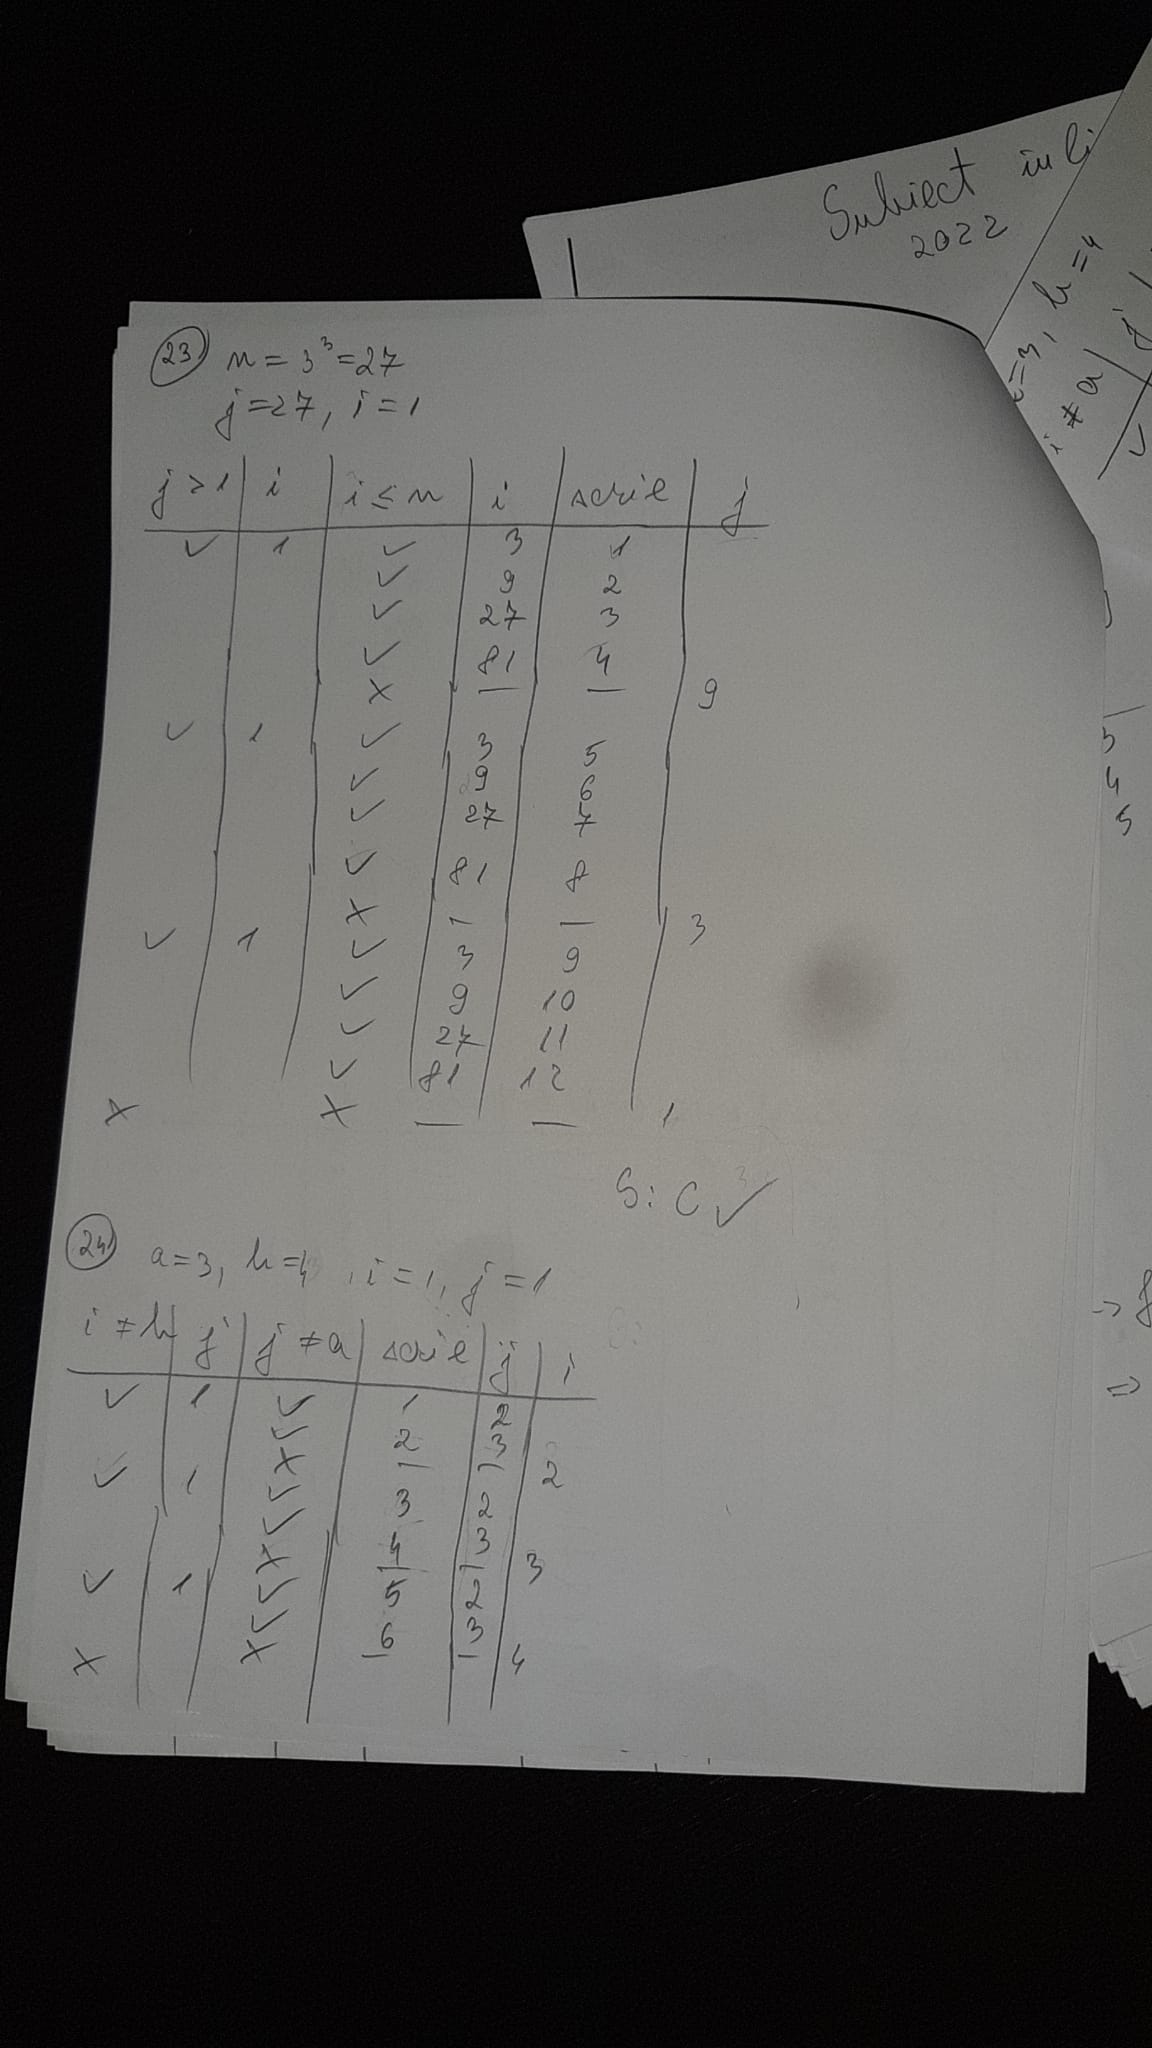 Subiect
2022
=3, b=4
i ≠ a | j
✓
(23) n = 3³ = 27
j = 27, i = 1
j > 1 | i | i ≤ n | i | scrie | j
✓ 1 ✓ 3 1
✓ 9 2
✓ 27 3
✓ 81 4
X — — 9
✓ 1 ✓ 3 5
✓ 9 6
✓ 27 7
✓ 81 8
X — — 3
✓ 1 ✓ 3 9
✓ 9 10
✓ 27 11
✓ 81 12
X X — — 1
S: C ✓
(24) a = 3, b = 4, i = 1, j = 1
i ≠ b | j | j ≠ a | scrie | j | i
✓ 1 ✓ 1 2
✓ 2 3
X — — 2
✓ 1 ✓ 3 2
✓ 4 3
X — — 3
✓ 1 ✓ 5 2
✓ 6 3
X X — — 4
3
4
5
=>
=>